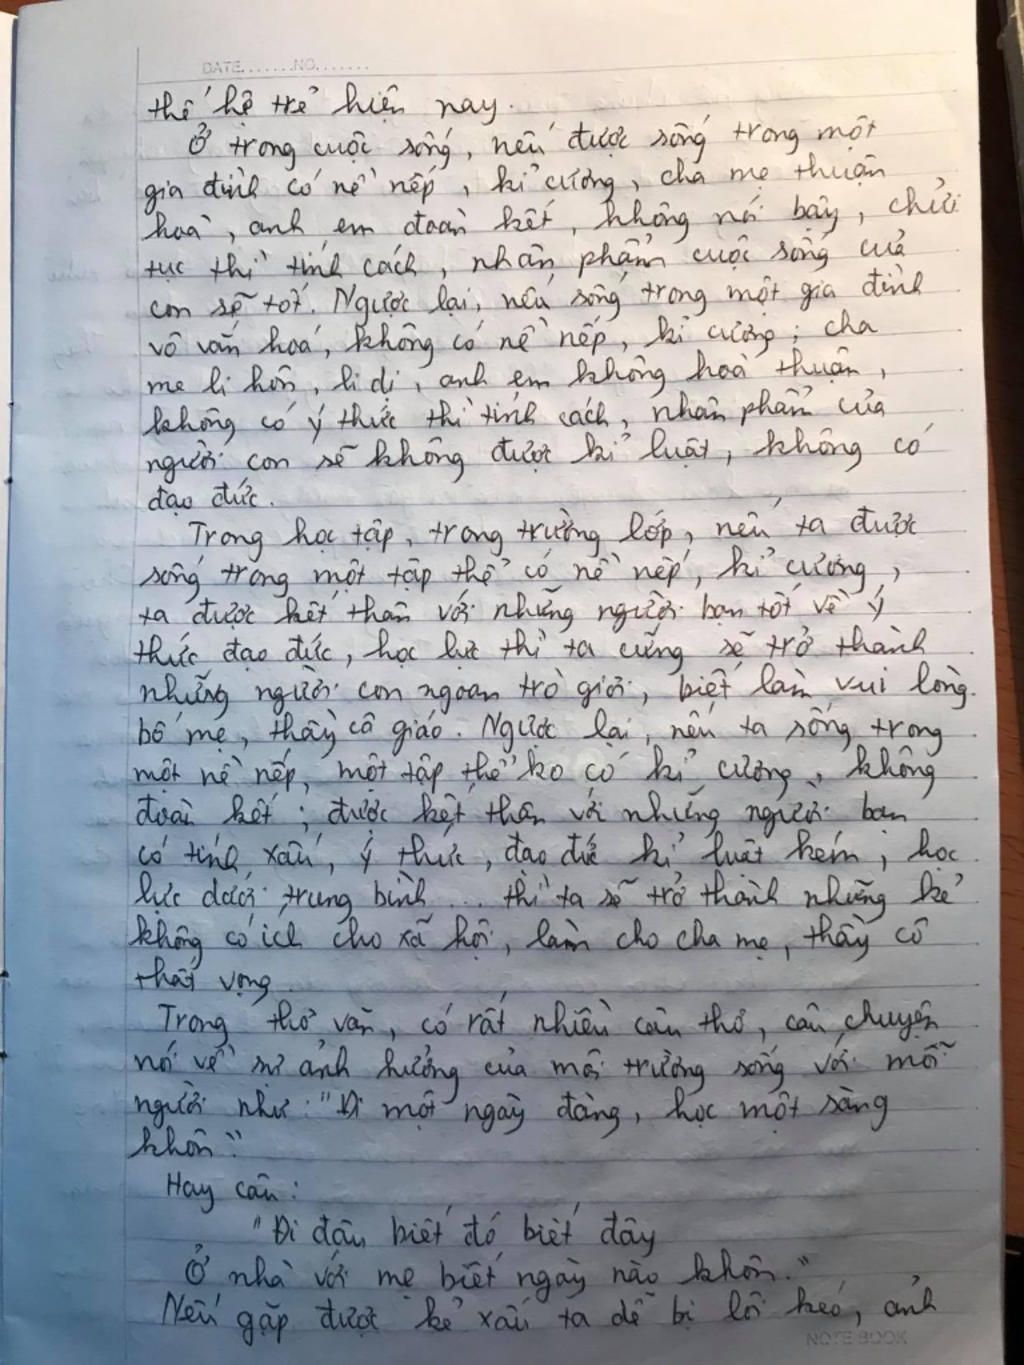 DATE.......NO.......
thế hệ trẻ hiện nay.
Ở trong cuộc sống, nếu được sống trong một
gia đình có nề nếp, kỉ cương, cha mẹ thuận
hoà, anh em đoàn kết, không nói bậy, chửi
tục thì tính cách, nhân phẩm cuộc sống của
con sẽ tốt. Ngược lại, nếu sống trong một gia đình
vô văn hoá, không có nề nếp, kỉ cương; cha
mẹ li hôn, li dị, anh em không hoà thuận,
không có ý thức thì tính cách, nhân phẩm của
người con sẽ không được kỉ luật, không có
đạo đức.
Trong học tập, trong trường lớp, nếu ta được
sống trong một tập thể có nề nếp, kỉ cương,
ta được kết thân với những người bạn tốt về ý
thức đạo đức, học lực thì ta cũng sẽ trở thành
những người con ngoan trò giỏi, biết làm vui lòng
bố mẹ, thầy cô giáo. Ngược lại, nếu ta sống trong
một nề nếp, một tập thể ko có kỉ cương, không
đoàn kết; được kết thân với những người bạn
có tính xấu, ý thức, đạo đức kỉ luật kém, học
lực dưới trung bình... thì ta sẽ trở thành những kẻ
không có ích cho xã hội, làm cho cha mẹ, thầy cô
thất vọng.
Trong thơ văn, có rất nhiều câu thơ, câu chuyện
nói về sự ảnh hưởng của môi trường sống với mỗi
người như: "Đi một ngày đàng, học một sàng
khôn".
Hay câu:
"Đi đâu biết đó biết đây
Ở nhà với mẹ biết ngày nào khôn."
Nếu gặp được kẻ xấu ta dễ bị lôi kéo, ảnh
NOTE BOOK